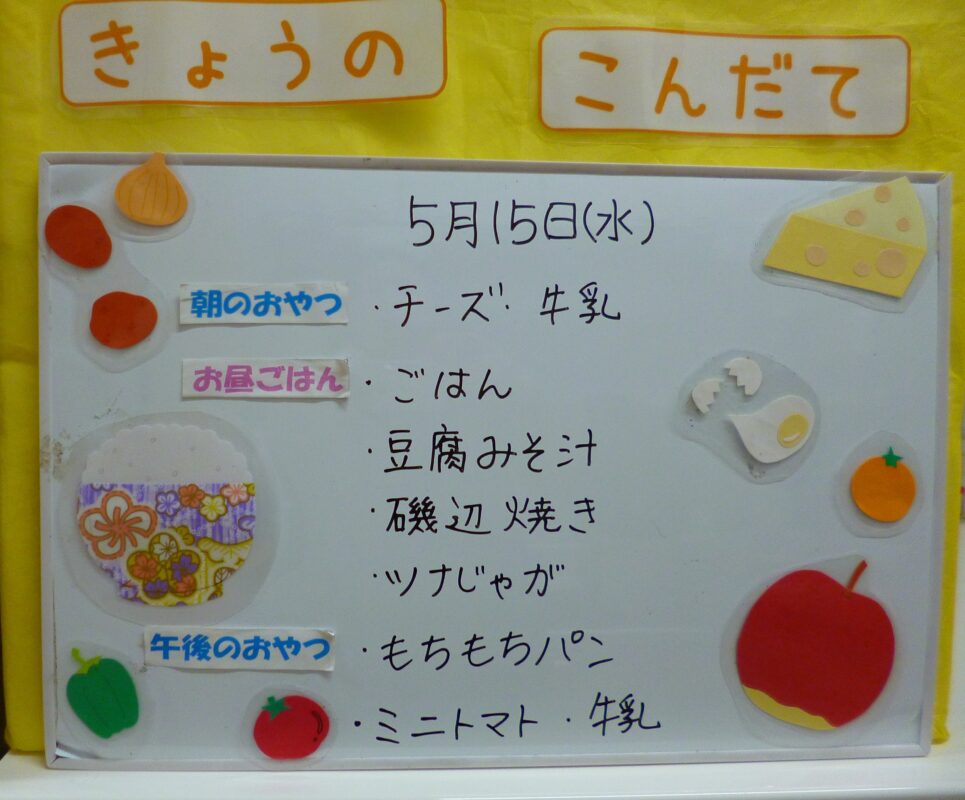 きょうの こんだて
5月15日(水)
朝のおやつ ・チーズ・牛乳
お昼ごはん ・ごはん
・豆腐みそ汁
・磯辺焼き
・ツナじゃが
午後のおやつ ・もちもちパン
・ミニトマト・牛乳